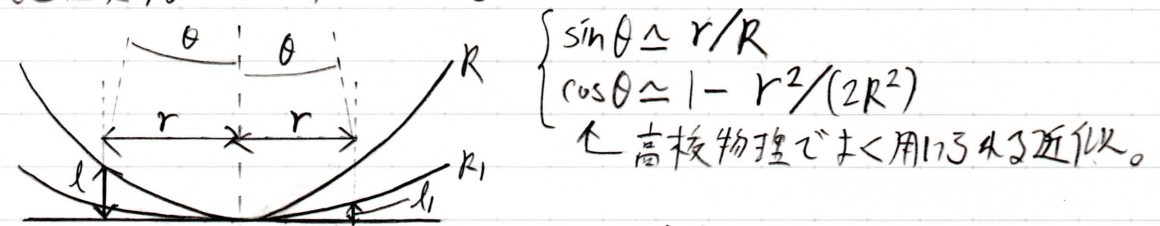 θ θ
R
r r
l
R₁
l₁
sinθ≃ r/R
cosθ≃ 1- r²/(2R²)
↑ 高校物理でよく用いられる近似。